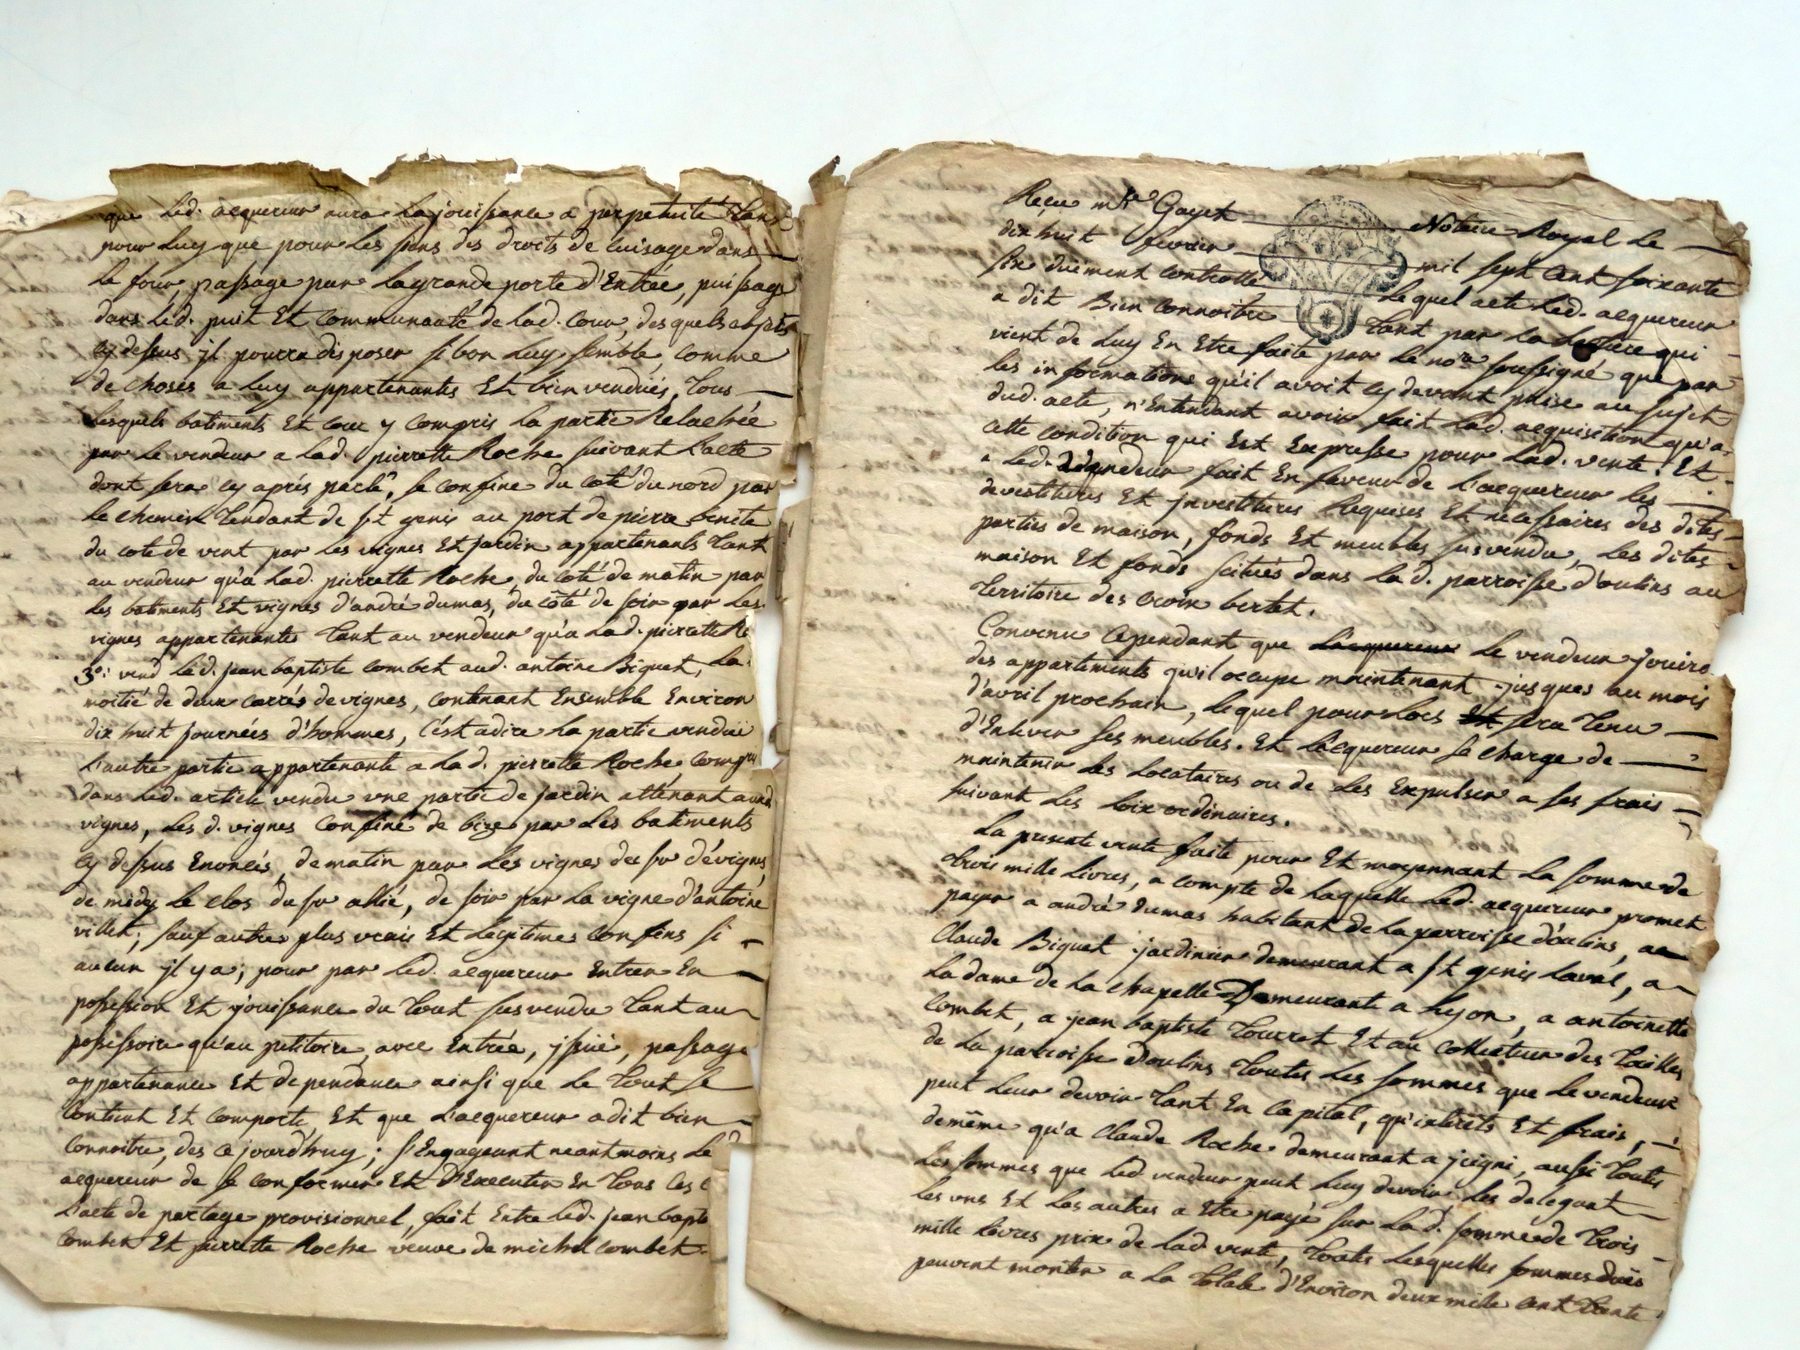 que led. acquereur aura la jouissance a perpetuité tant
pour luy que pour les siens des droits de cuisage dans
le four, passage par la grande porte d'Entrée, puissage
dans led. puit Et communauté de lad. cour, des quels objets
cy dessus jl pourra disposer si bon luy semble, comme
de choses a luy appartenantes Et bien venduës, tous
lesquels batiments Et cour y compris la partie Relachée
par le vendeur a lad. pierrette Roche suivant l'acte
dont sera cy aprés parlé, se confine du coté du nord par
le chemin tendant de st genis au port de pierre benite
du coté de vent par les vignes Et jardin appartenants tant
au vendeur qu'a lad. pierrette Roche, du coté de matin par
les batiments Et vignes d'andré dumas, du côté de soir par les
vignes appartenantes tant au vendeur qu'a lad. pierrette Ro
3°: vend led. jean baptiste combet aud. antoine Biguet, la
moitié de deux carrés de vignes, contenant Ensemble Environ
dix huit journées d'hommes, c'est adire la partie venduë
l'autre partie appartenante a lad. pierrette Roche compris
dans led. article vendu une partie de jardin atténant auxd
vignes, les d. vignes confiné de bize par les batiments
cy dessus Enoncés, de matin par les vignes du sr dévignes,
de midy le clos du sr allié, de soir par la vigne d'antoine
villet; sauf autres plus vrais Et legitimes confins si
aucun jl y a; pour par led. acquereur Entrer En
possession Et jouissance du tout sus vendu tant au
possessoire qu'au petitoire, avec Entrée, jssuë, passage
appartenance Et dependance ainsi que le tout se
contient Et comporte, Et que l'acquereur a dit bien
connoitre, des ce jourd'huy; s'Engageant neantmoins led
acquereur de se conformer Et d'Executer En tous ces
l'acte de partage provisionnel, fait Entre led. jean bapte
combet Et pierrette Roche veuve de michel combet
Reçu mtre Gayet Notaire Royal le
dix huit fevrier mil sept cent soixante
six duëment controllé lequel acte led. acquereur
a dit Bien connoitre tant par la lecture qui
vient de luy En Etre faite par le nore soussigné que par
les informations qu'il avoit cy devant prise au sujet
dud. acte, n'Entendant avoir fait lad. acquisition qu'a
cette condition qui Est Expresse pour lad. vente. Et
a led. vendeur fait En faveur de l'acquereur les
devestitures Et jnvestitures Requises Et nécessaires des dites
parties de maison, fonds Et meubles sus vendu, les dites
maison Et fonds scitués dans la d. parroisse d'oulins au
territoire des croix bertet.
Convenu cependant que l'acquereur le vendeur jouira
des appartements qu'il occupe maintenant jusques au mois
d'avril prochain, lequel pour lors Est sera tenu
d'Enlever ses meubles. Et l'acquereur se charge de
maintenir les locataires ou de les Expulser a ses frais
suivant les loix ordinaires.
La presente vente faite pour Et moyennant la somme de
trois mille livres, a compte de laquelle led. acquereur promet
payer a andré dumas habitant de la parroisse d'oulins, a
Claude Biguet jardinier demeurant a st genis laval, a
la dame de la chapelle Demeurant a lyon, a antoinette
combet, a jean baptiste tourret Et au collecteur des tailles
de la parroisse d'oulins toutes les sommes que le vendeur
peut leur devoir tant En capital, qu'interets Et frais,
demême qu'a claude Roche demeurant a jrigni, aussi toutes
les sommes que led. vendeur peut luy devoir les delegant
les uns Et les autres a Etre payé sur la d. somme de trois
mille livres prix de lad. vente, toutes lesquelles sommes duës
peuvent monter a la totale d'Environ deux mille cent trente